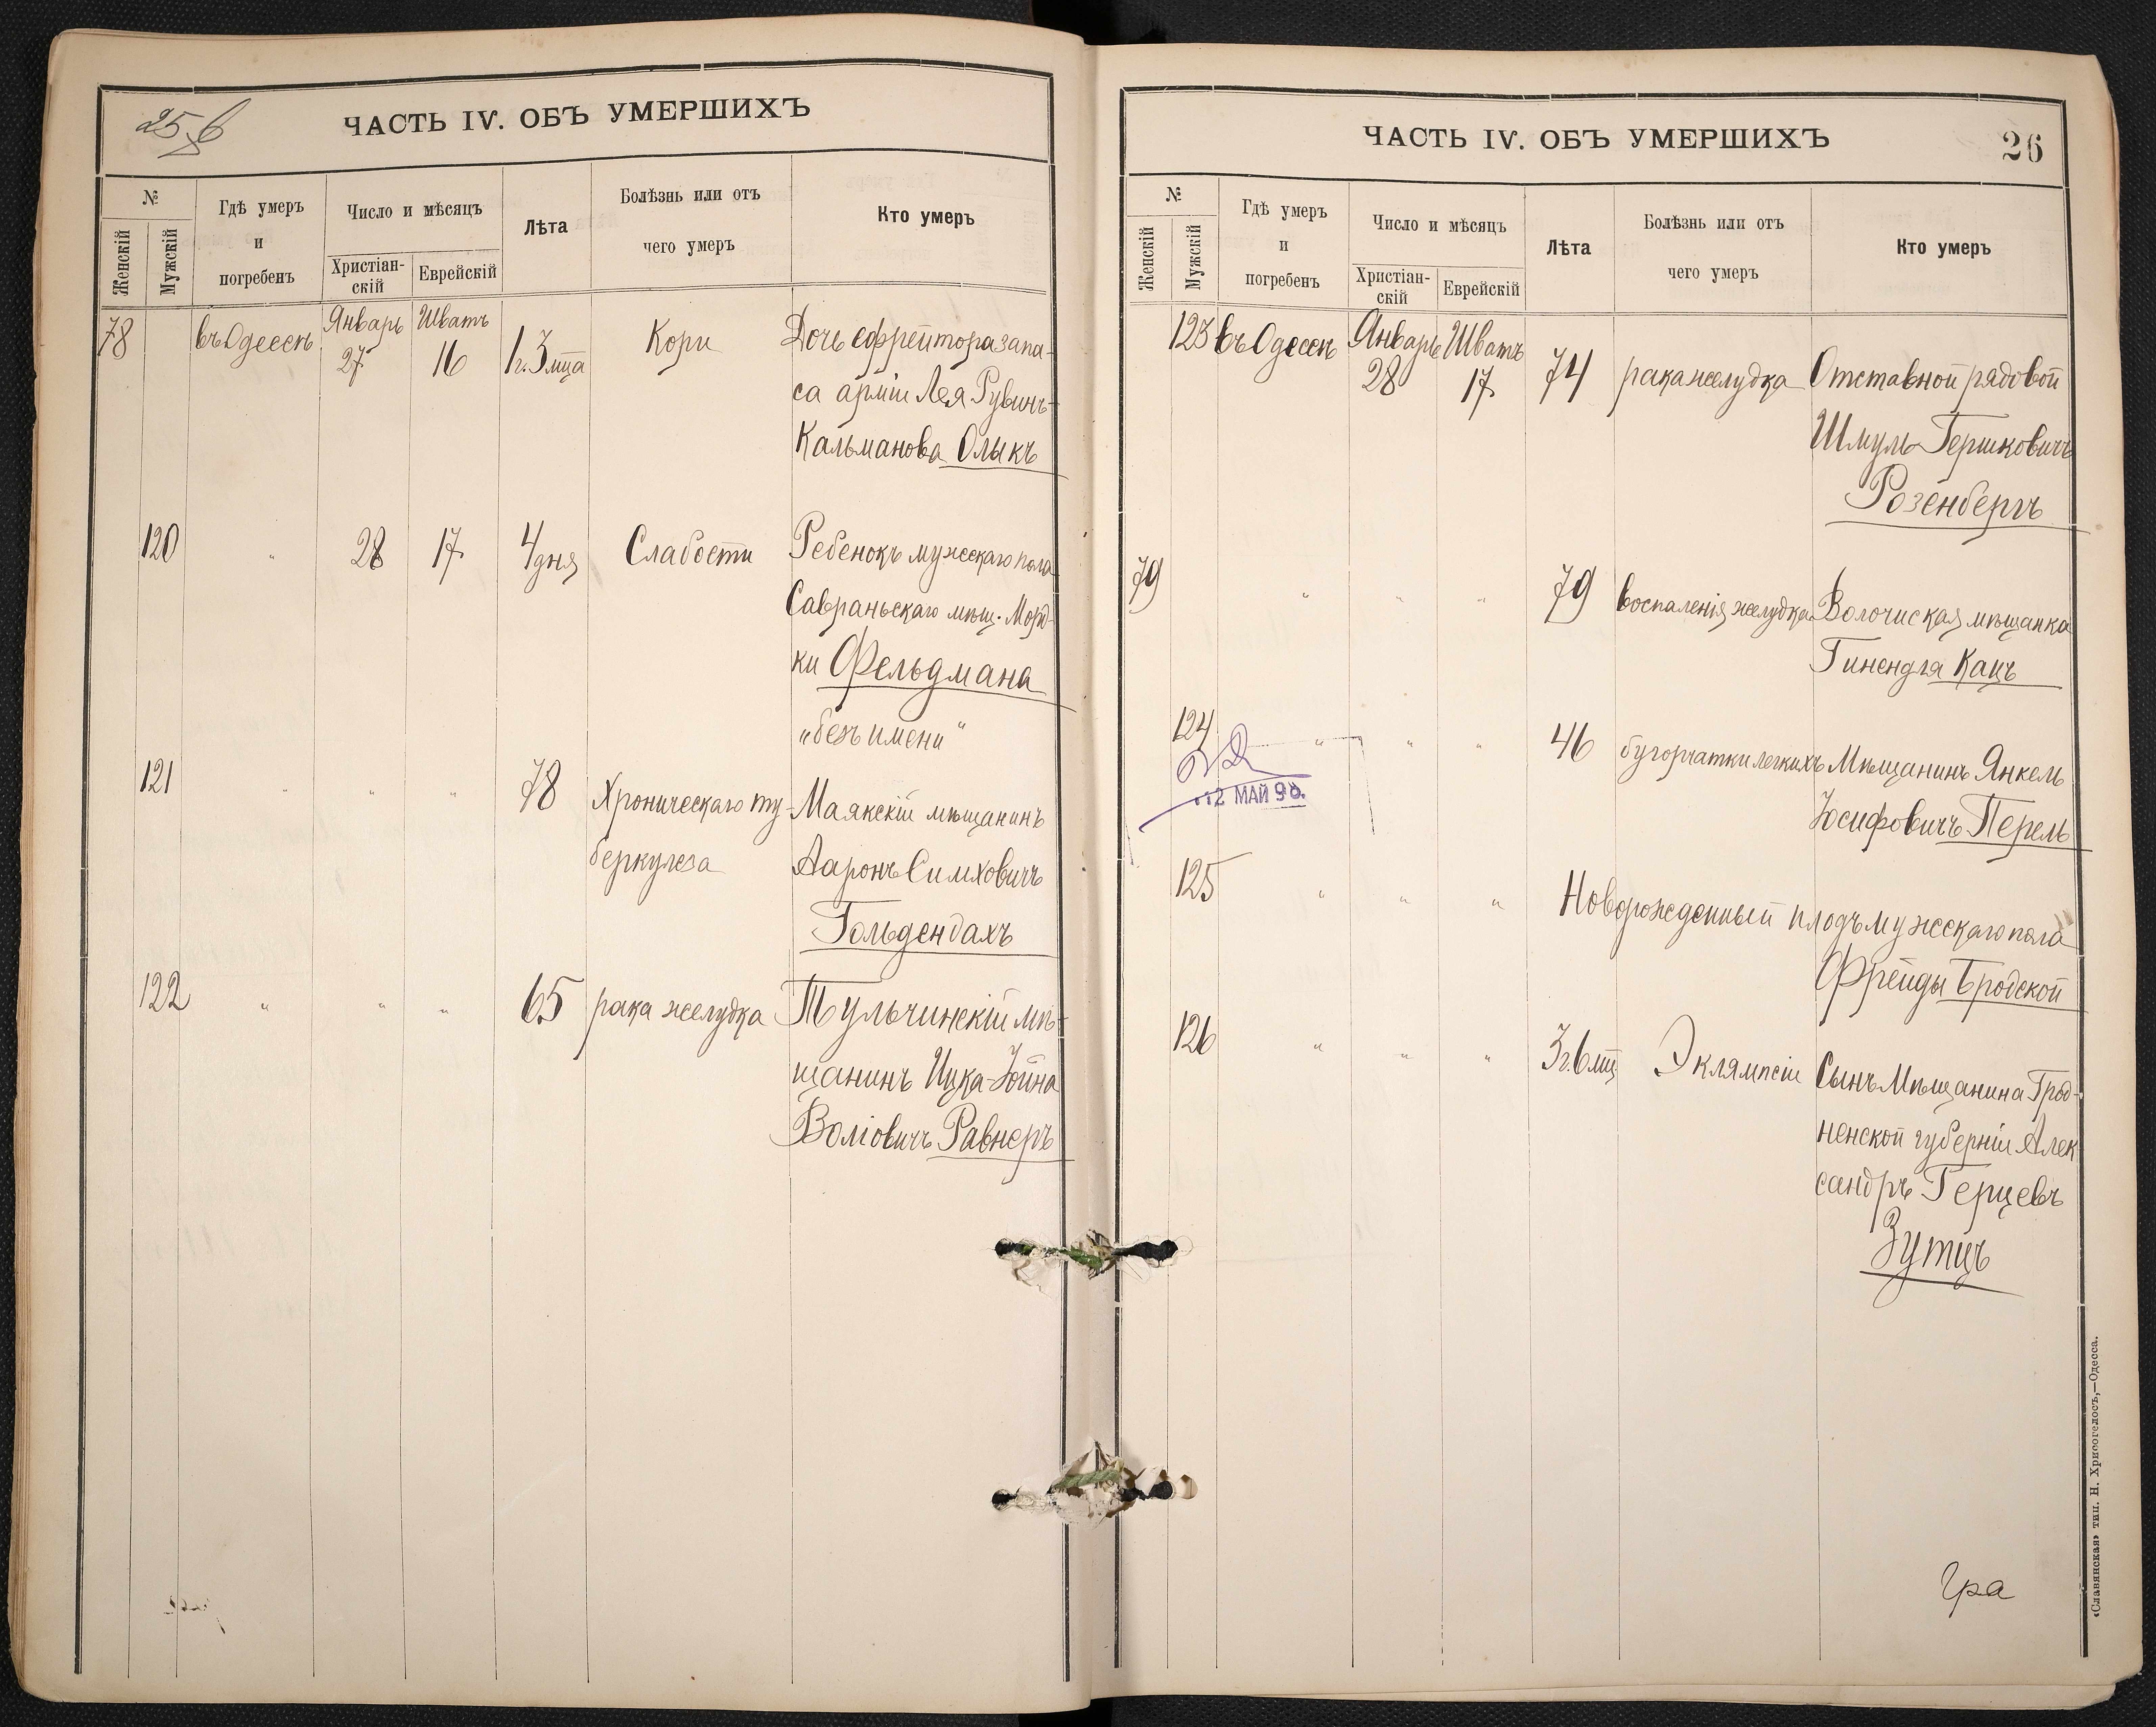 25 б
ЧАСТЬ IV. ОБЪ УМЕРШИХЪ
№
Женскій
Мужскій
Гдѣ умеръ
и
погребенъ
Число и мѣсяцъ
Христіан-
скій
Еврейскій
Лѣта
Болѣзнь или отъ
чего умеръ
Кто умеръ
78 въ Одессѣ Январь 27 Шватъ 16 1г. 3 мца Кори Дочь ефрейтора запа-
са арміи Лея Рувинъ-
Кальманова Олыкъ
120 " 28 17 4 дня Слабости Ребенокъ мужескаго пола
Савраньскаго мѣщ. Морд-
ки Фельдмана
"безъ имени"
121 " " " 78 Хроническаго ту- Маякскій мѣщанинъ
беркулеза Ааронъ Симховичъ
Гольдендахъ
122 " " " 65 рака желудка Тульчинскій мѣ-
щанинъ Ицка-Іойна
Воліовичъ Равнеръ
ЧАСТЬ IV. ОБЪ УМЕРШИХЪ
26
№
Женскій
Мужскій
Гдѣ умеръ
и
погребенъ
Число и мѣсяцъ
Христіан-
скій
Еврейскій
Лѣта
Болѣзнь или отъ
чего умеръ
Кто умеръ
123 въ Одессѣ Январь 28 Шватъ 17 74 рака желудка Отставной рядовой
Шмуль Гершковичъ
Розенбергъ
79 " " " 79 воспаленія желудка Волочиская мѣщанка
Гинендля Кацъ
124 " " " 46 бугорчатки легкихъ Мѣщанинъ Янкель
Іосифовичъ Перель
12 МАЙ 98.
125 " " " Новорожденный плодъ мужескаго пола
Фрейды Бродской
126 " " " 3г. 6 мц Эклямпсіи Сынъ Мѣщанина Грод-
ненской губерніи Алек
сандръ Герцевъ
Зутцъ
«Славянская» тип. Н. Хрисогелосъ,—Одесса.